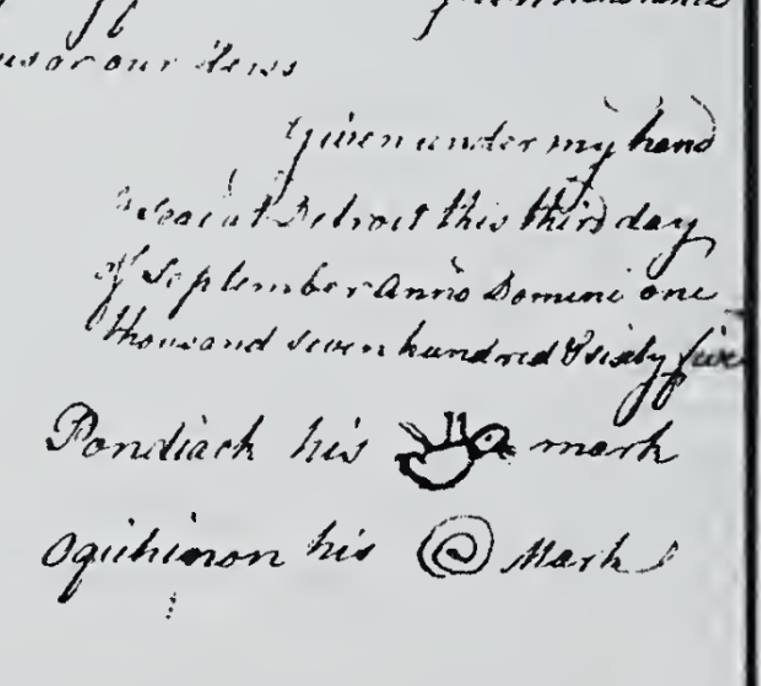 us or our Heirs
Given under my hand
& Seal at Detroit this third day
of September Anno Domini one
thousand seven hundred & sixty five
Pondiack his mark
Oquihinon his Mark